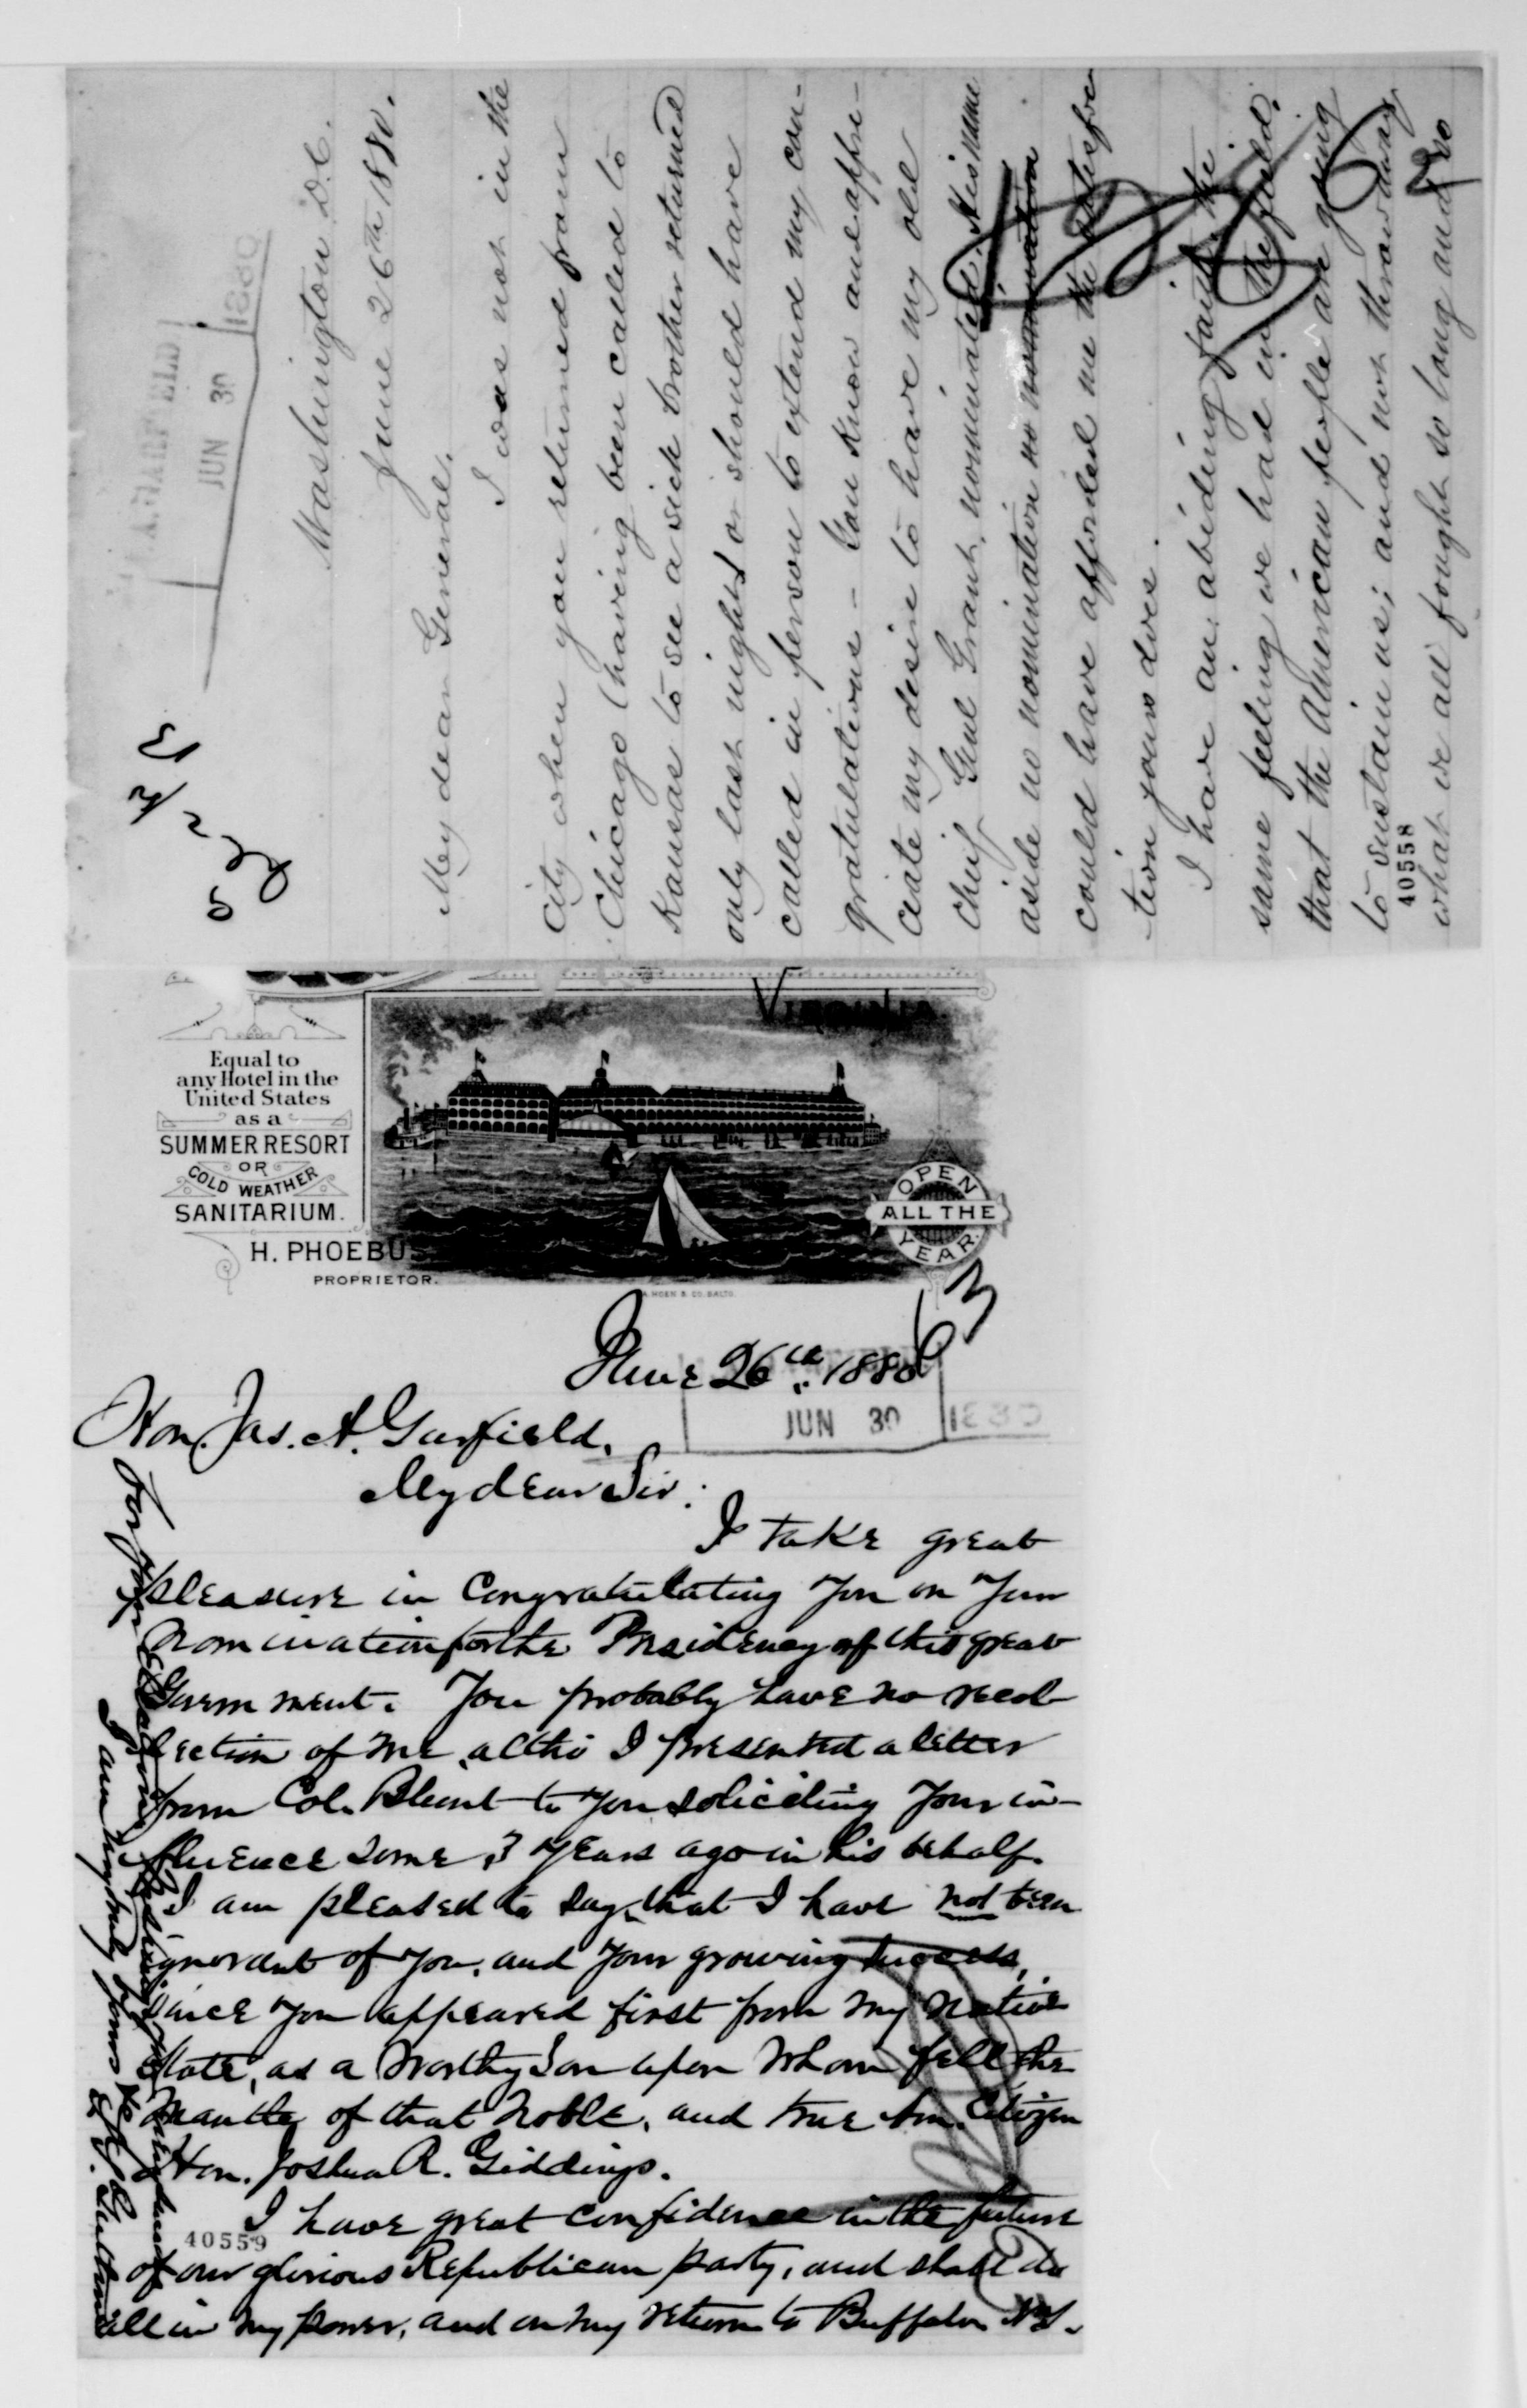 J.A. GARFIELD
JUN 30 1880
Washington D.C.
June 26th 1880.
My dear General.
I was not in the
City when you returned from
Chicago (having been called to
Kansas to see a sick brother returned
only last night) or should have
called in person to extend my con-
gratulations - You know and appre-
ciate my desire to have my old
chief Genl Grant, nominated. His name
aside no nomination no nomination
could have afforded me the satisfac
tion yours does.
I have an abiding faith the
same feeling we had in the field.
that the American people are going
to sustain us; and not throw away
40558
what we all fought so long and so
Virginia
Equal to
any Hotel in the
United States
as a
SUMMER RESORT
OR
COLD WEATHER
SANITARIUM.
H. PHOEBUS
PROPRIETOR.
OPEN
ALL THE
YEAR.
A. HOEN & CO. BALTO.
63
June 26th 1880
JUN 30 1880
Hon. Jas. A. Garfield.
My dear Sir:
I take great
pleasure in Congratulating You on Your
nomination for the Presidency of this great
Government. You probably have no recol-
lection of me, altho I presented a letter
from Col. Blunt to you soliciting Your in-
fluence some 3 years ago in his behalf.
I am pleased to say, that I have not been
ignorant of you, and your growing success,
since you appeared first from my native
State, as a worthy Son upon whom fell the
mantle of that noble, and true Am. Citizen
Hon. Joshua R. Giddings.
I have great confidence in the future
40559
of our glorious Republican party, and shall do
all in my power, and on my return to Buffalo N.Y.
for your election
I am very truly yours